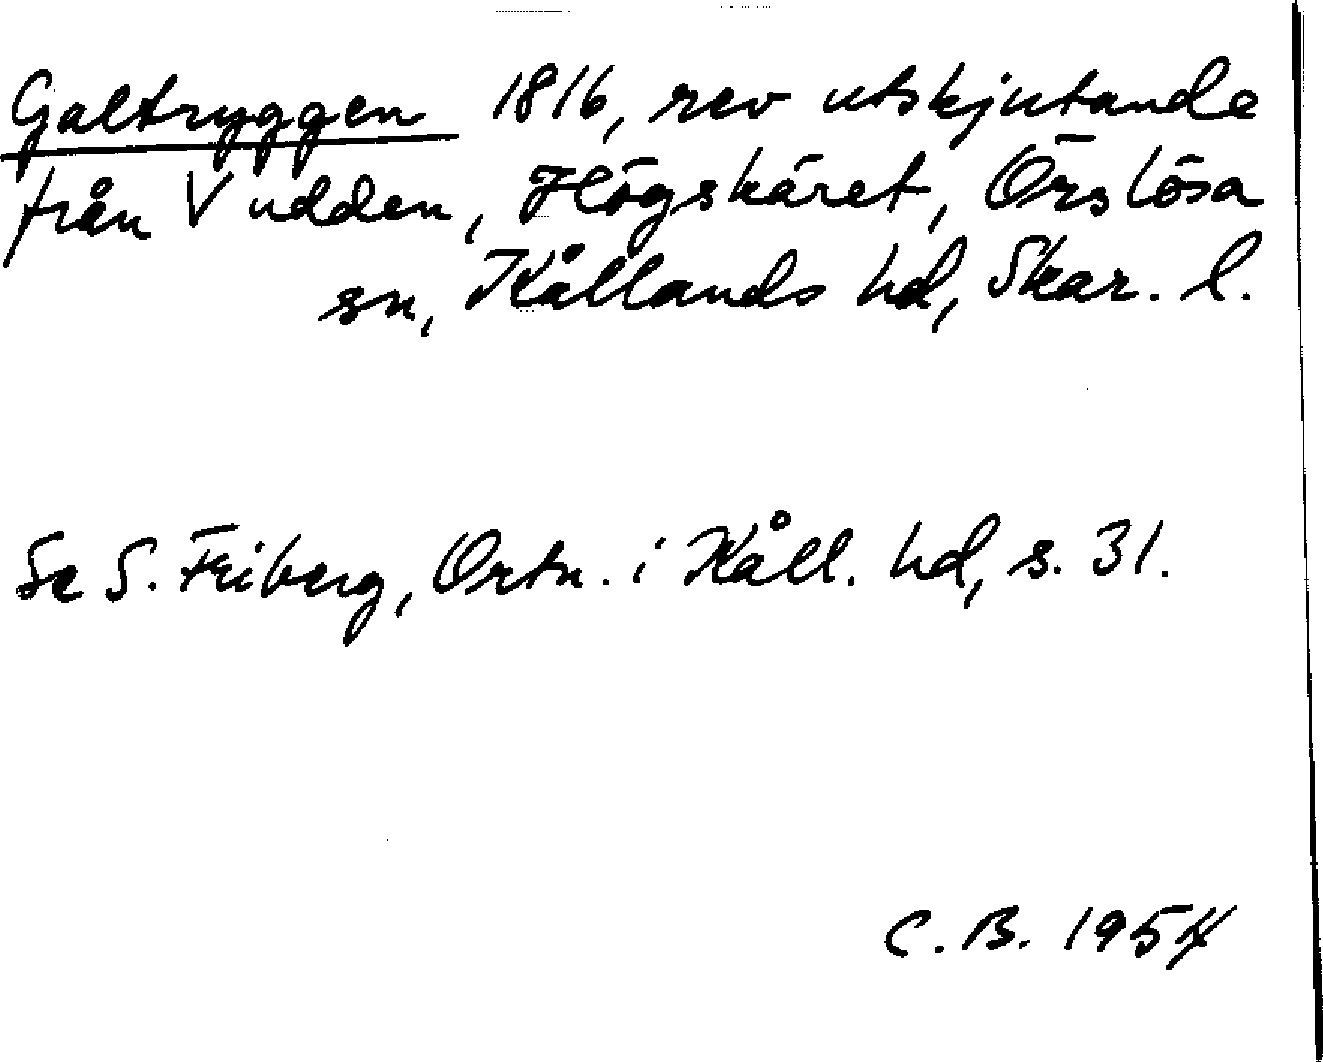 Galtryggen 1816, rev utskjutande
från V udden, Högskäret, Örslösa
sn, Kållands hd, Skar. l.
Se S. Friberg, Ortn. i Kåll. hd, s. 31.
C. B. 1954